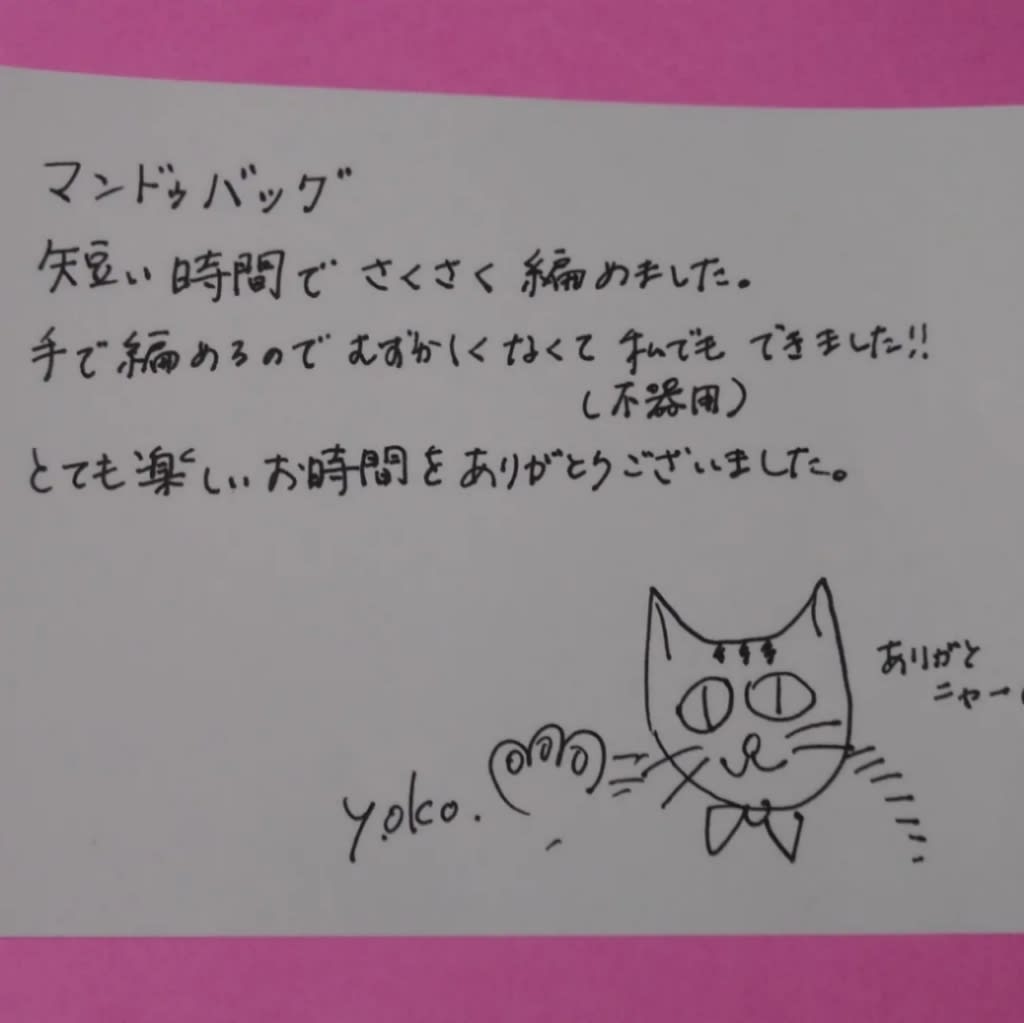 マンドゥバッグ
短い時間でさくさく編めました。
手で編めるのでむずかしくなくて私でもできました!!
(不器用)
とても楽しいお時間をありがとうございました。
ありがと
ニャー
yoko.